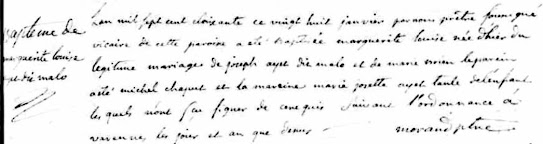 Baptême de
marguerite louise
ayet dit malo
L'an mil sept cent soixante ce vingt huit janvier par nous prêtre soussigné
vicaire de cette paroise a été baptisée marguerite louise née d'hier du
legitime mariage de joseph ayet dit malo et de marie le parein
a été michel choquet et la mareine marie josette ayet tante de l'enfant
lesquels n'ont sçu signer de ce requis suivant l'ordonnance a
varenne les jour et an que dessus morand ptre